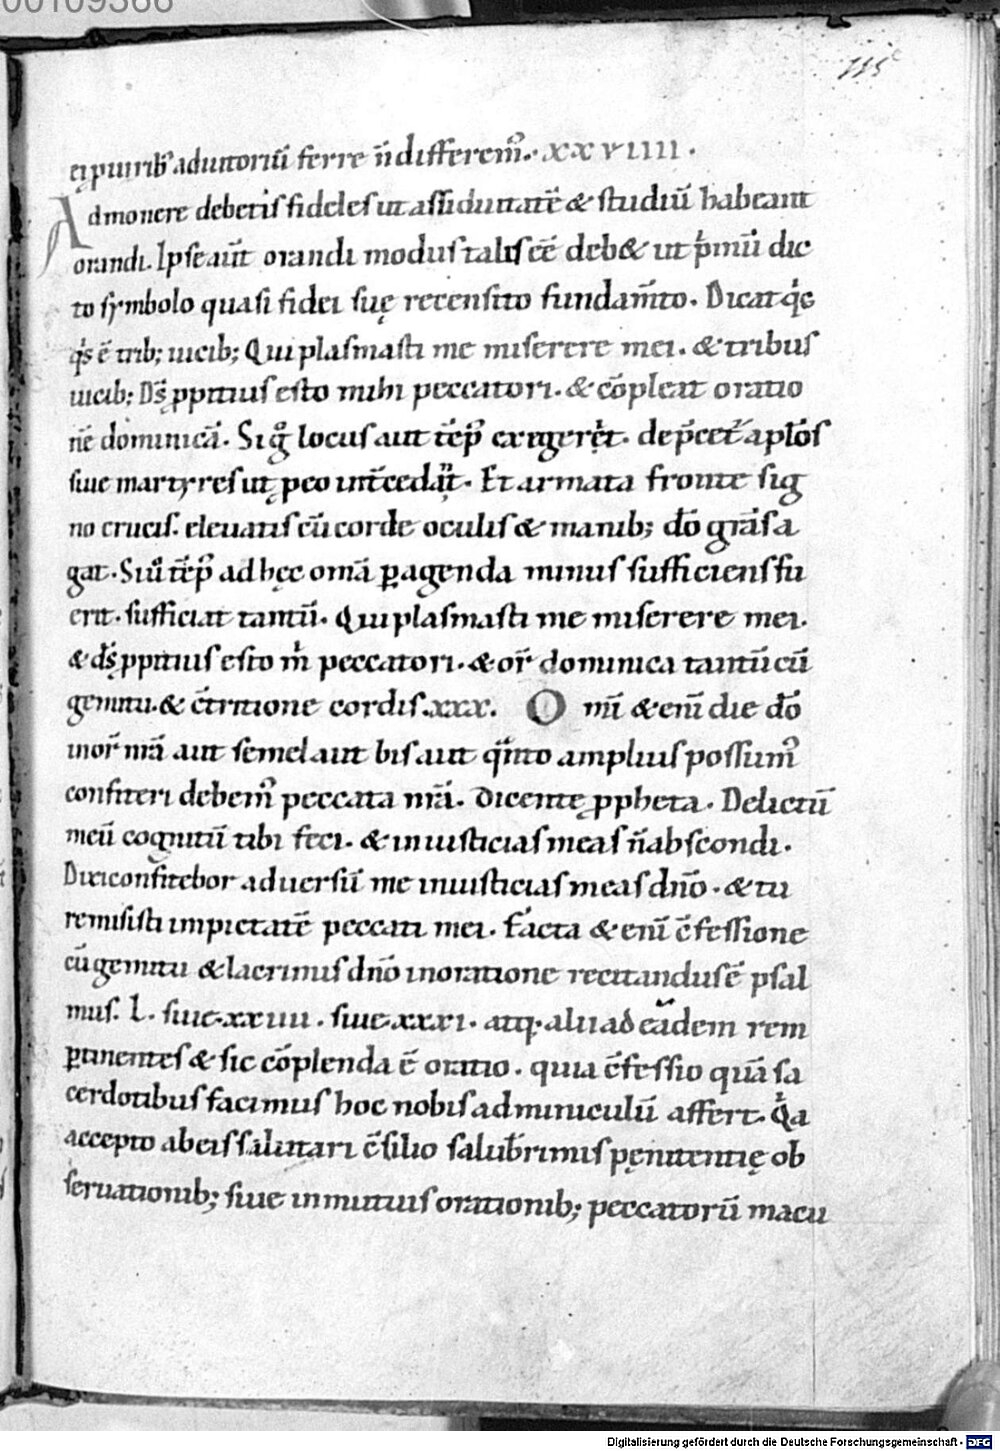 00109368
115
eį puirib; adiutoriū ferre n̄ differem᷒. xxviiii.
Admonere debetis fideles ut assiduitatē & studiū habeant
orandi. Ipse aūt orandi modus talis eē deb& ut p̍mū dic
to symbolo quasi fidei suę recensito fundam̄to. Dicat q̍c
q̍s ē trib; uicib; Qui plasmasti me miserere mei. & tribus
uicib; D̄s ꝓpitius esto mihi peccatori. & cōpleat oratio
nē dominicā. Si g̊ locus aut tēp᷒ exigerēt. dep̄cet᷒ ap̄los
siue martyres ut ꝓ eo int̄cedāt. Et armata fronte sig
no crucis. eleuatis cū corde oculis & manib; dō grās a
gat. Siū tēp᷒ ad hęc om̄a ꝑagenda minus sufficiens fu
erit. sufficiat tantū. Qui plasmasti me miserere mei.
& d̄s ꝓpitius esto m̍ peccatori. & or̄ dominica tantū cū
gemitu. & c̄tritione cordis. xxx. Om̄i & enī die dō
in or̄ n̄ra aut semel aut bis aut q̄nto amplius possum᷒
confiteri debem᷒ peccata n̄ra. dicente ꝓpheta. Delictū
meū cognitū tibi feci. & iniusticias meas n̄ abscondi.
Dixi confitebor aduersū me iniusticias meas dn̄o. & tu
remisisti impietatē peccati mei. facta & enī c̄fessione
cū gemitu & lacrimis dn̄o in oratione recitandus ē psal
mus. L. siue xxiiii. siue xxxi. atq. alii ad eādem rem
ꝑtinentes & sic cōplenda ē oratio. quia c̄fessio quā sa
cerdotibus facimus hoc nobis adminiculū affert. q̍a
accepto ab eis salutari c̄silio salub̄rimis pęnitentię ob
seruationib; siue in mutuis orationib; peccatorū macu
Digitalisierung gefördert durch die Deutsche Forschungsgemeinschaft - DFG